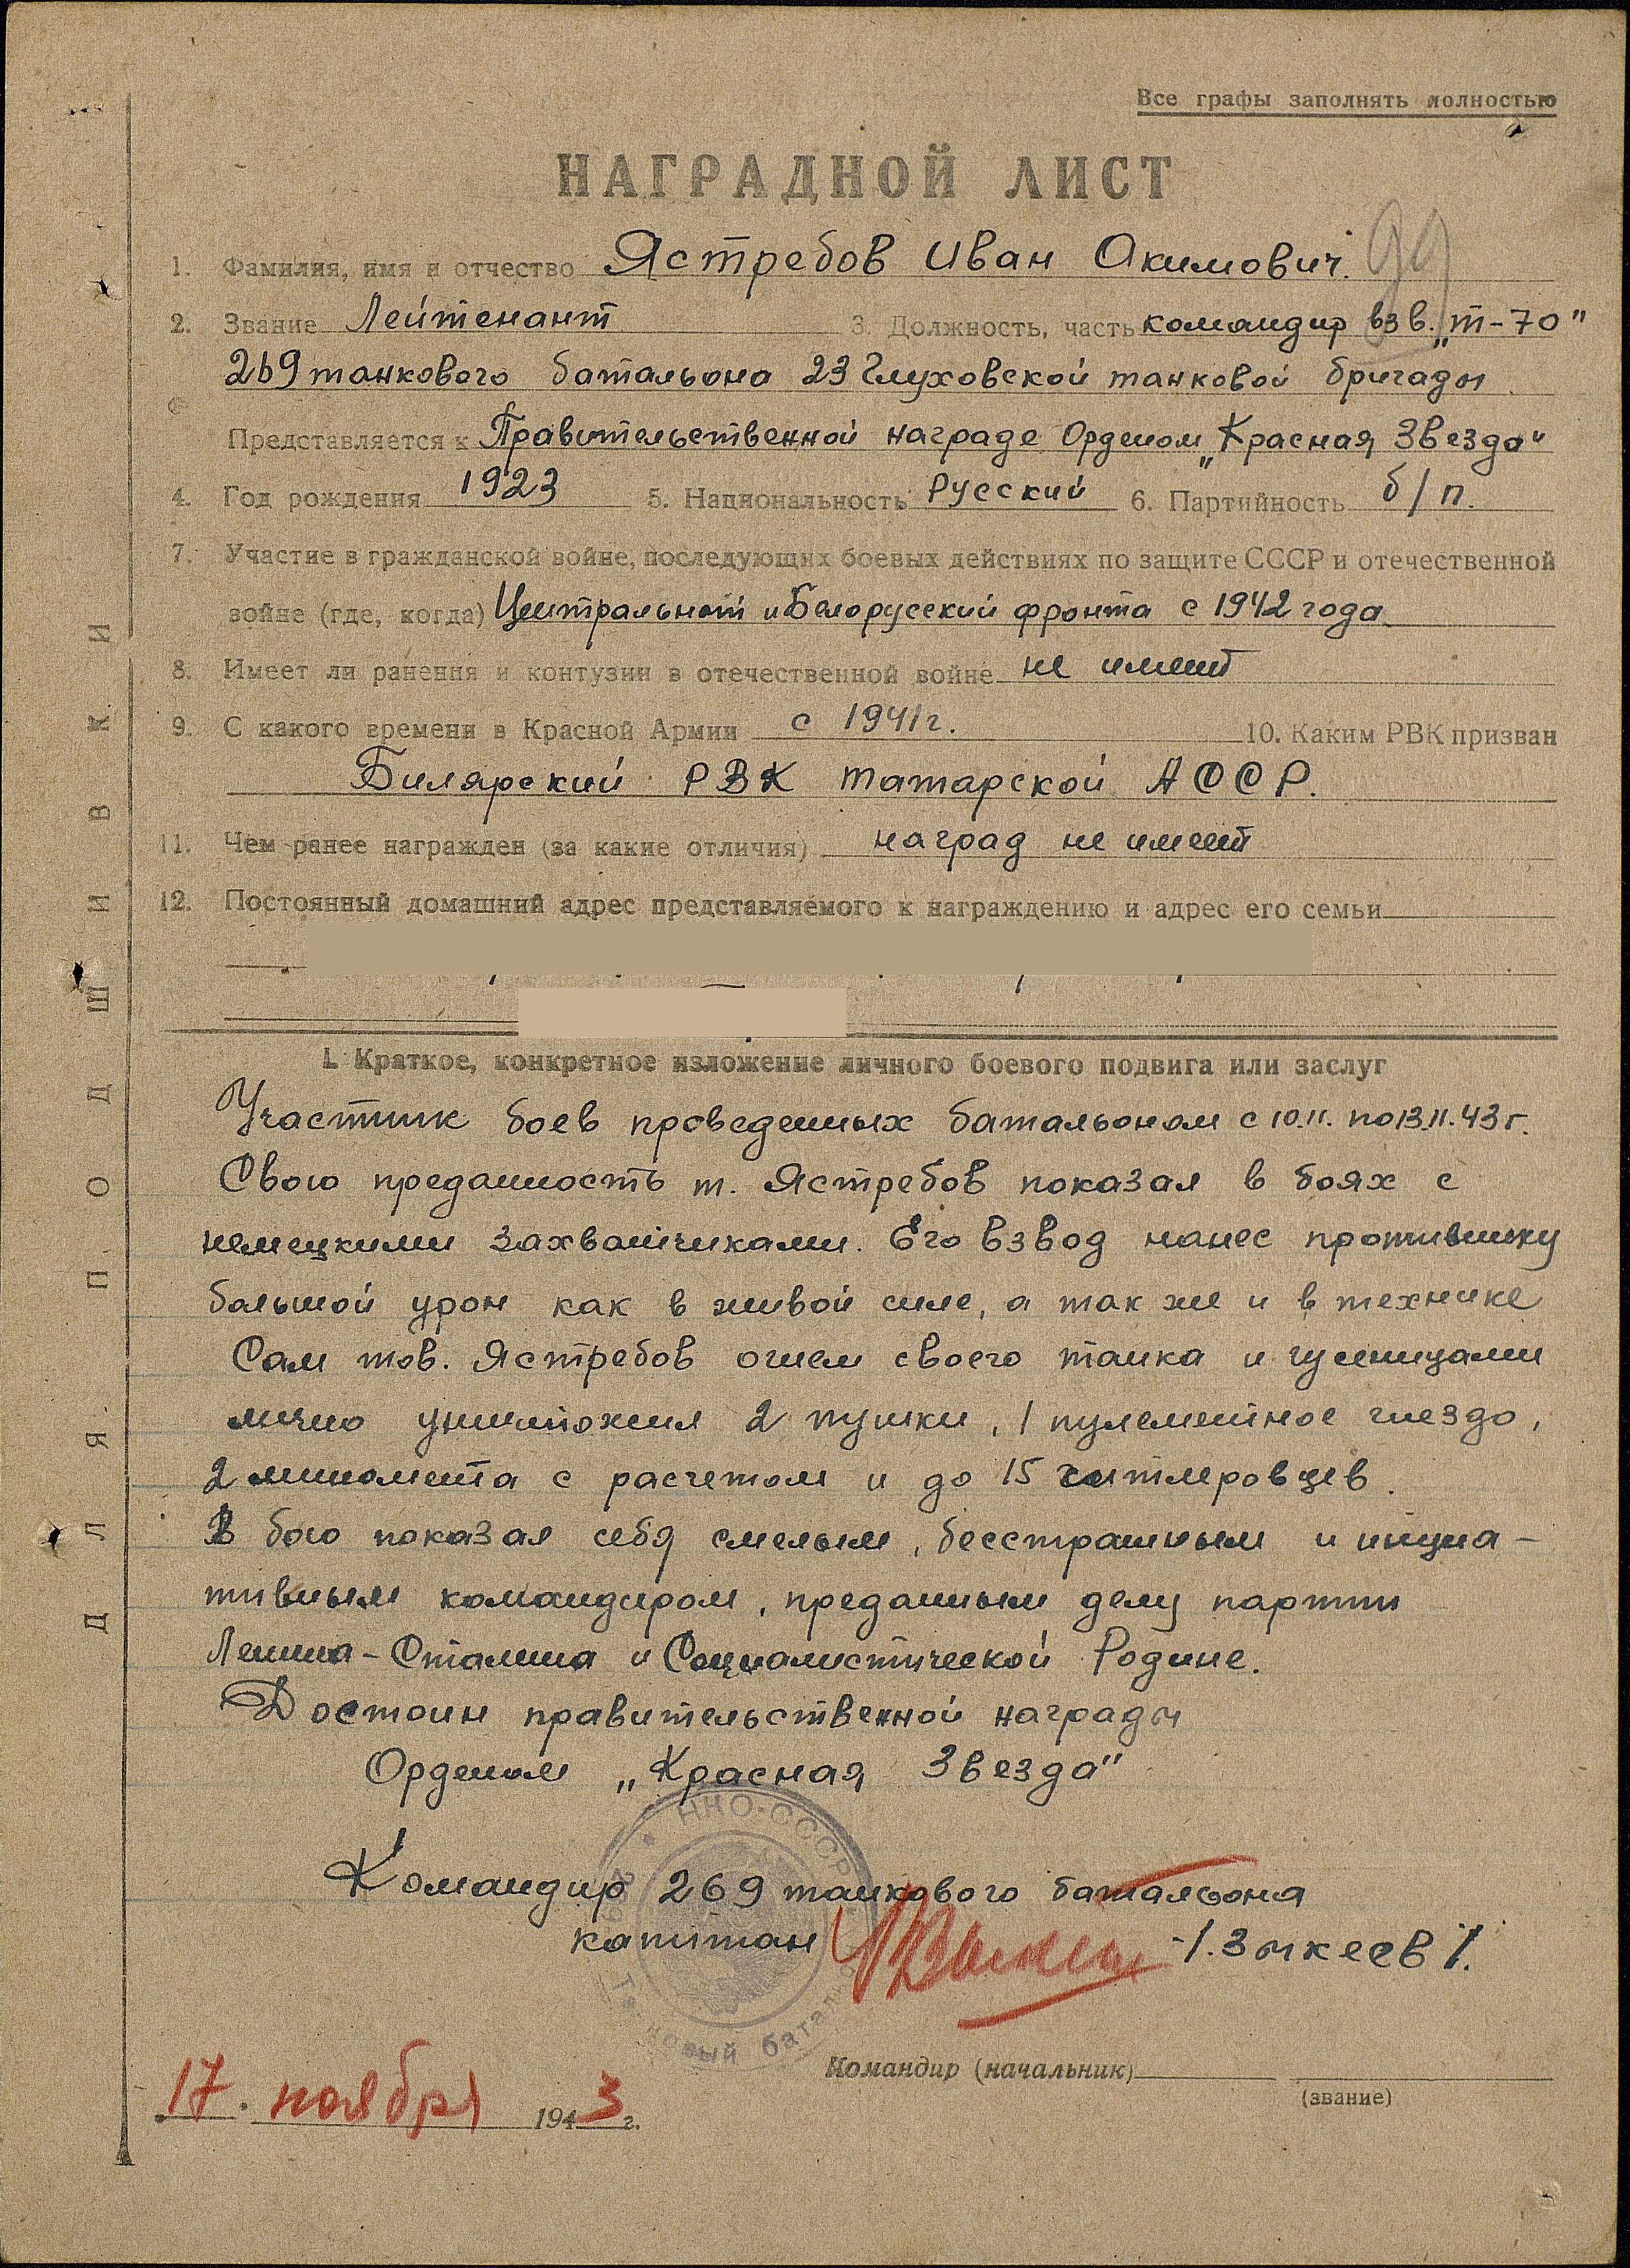 Все графы заполнять полностью
НАГРАДНОЙ ЛИСТ
99
1. Фамилия, имя и отчество Ястребов Иван Акимович.
2. Звание Лейтенант 3. Должность, часть командир взв. „Т-70"
269 танкового батальона 23 Глуховской танковой бригады
Представляется к Правительственной награде Орденом „Красная Звезда"
4. Год рождения 1923 5. Национальность Русский 6. Партийность б/п.
7. Участие в гражданской войне, последующих боевых действиях по защите СССР и отечественной
войне (где, когда) Центральный и Белорусский фронта с 1942 года
8. Имеет ли ранения и контузии в отечественной войне не имеет
9. С какого времени в Красной Армии с 1941 г. 10. Каким РВК призван
Билярский РВК Татарской АССР.
11. Чем ранее награжден (за какие отличия) наград не имеет
12. Постоянный домашний адрес представляемого к награждению и адрес его семьи
I. Краткое, конкретное изложение личного боевого подвига или заслуг
Участник боев проведенных батальоном с 10.11. по 13.11.43 г.
Свою преданность т. Ястребов показал в боях с
немецкими захватчиками. Его взвод нанес противнику
большой урон как в живой силе, а так же и в технике
Сам тов. Ястребов огнем своего танка и гусеницами
лично уничтожил 2 пушки, 1 пулеметное гнездо,
2 миномета с расчетом и до 15 гитлеровцев.
В бою показал себя смелым, бесстрашным и инциа-
тивным командиром, преданным делу партии
Ленина-Сталина и Социалистической Родине.
Достоин правительственной награды
Орденом „Красная Звезда"
НКО-СССР
269
Танковый батальон
Командир 269 танкового батальона
капитан /. Зыкеев /.
Командир (начальник)
(звание)
17. ноября 1943 г.
ДЛЯ ПОДШИВКИ